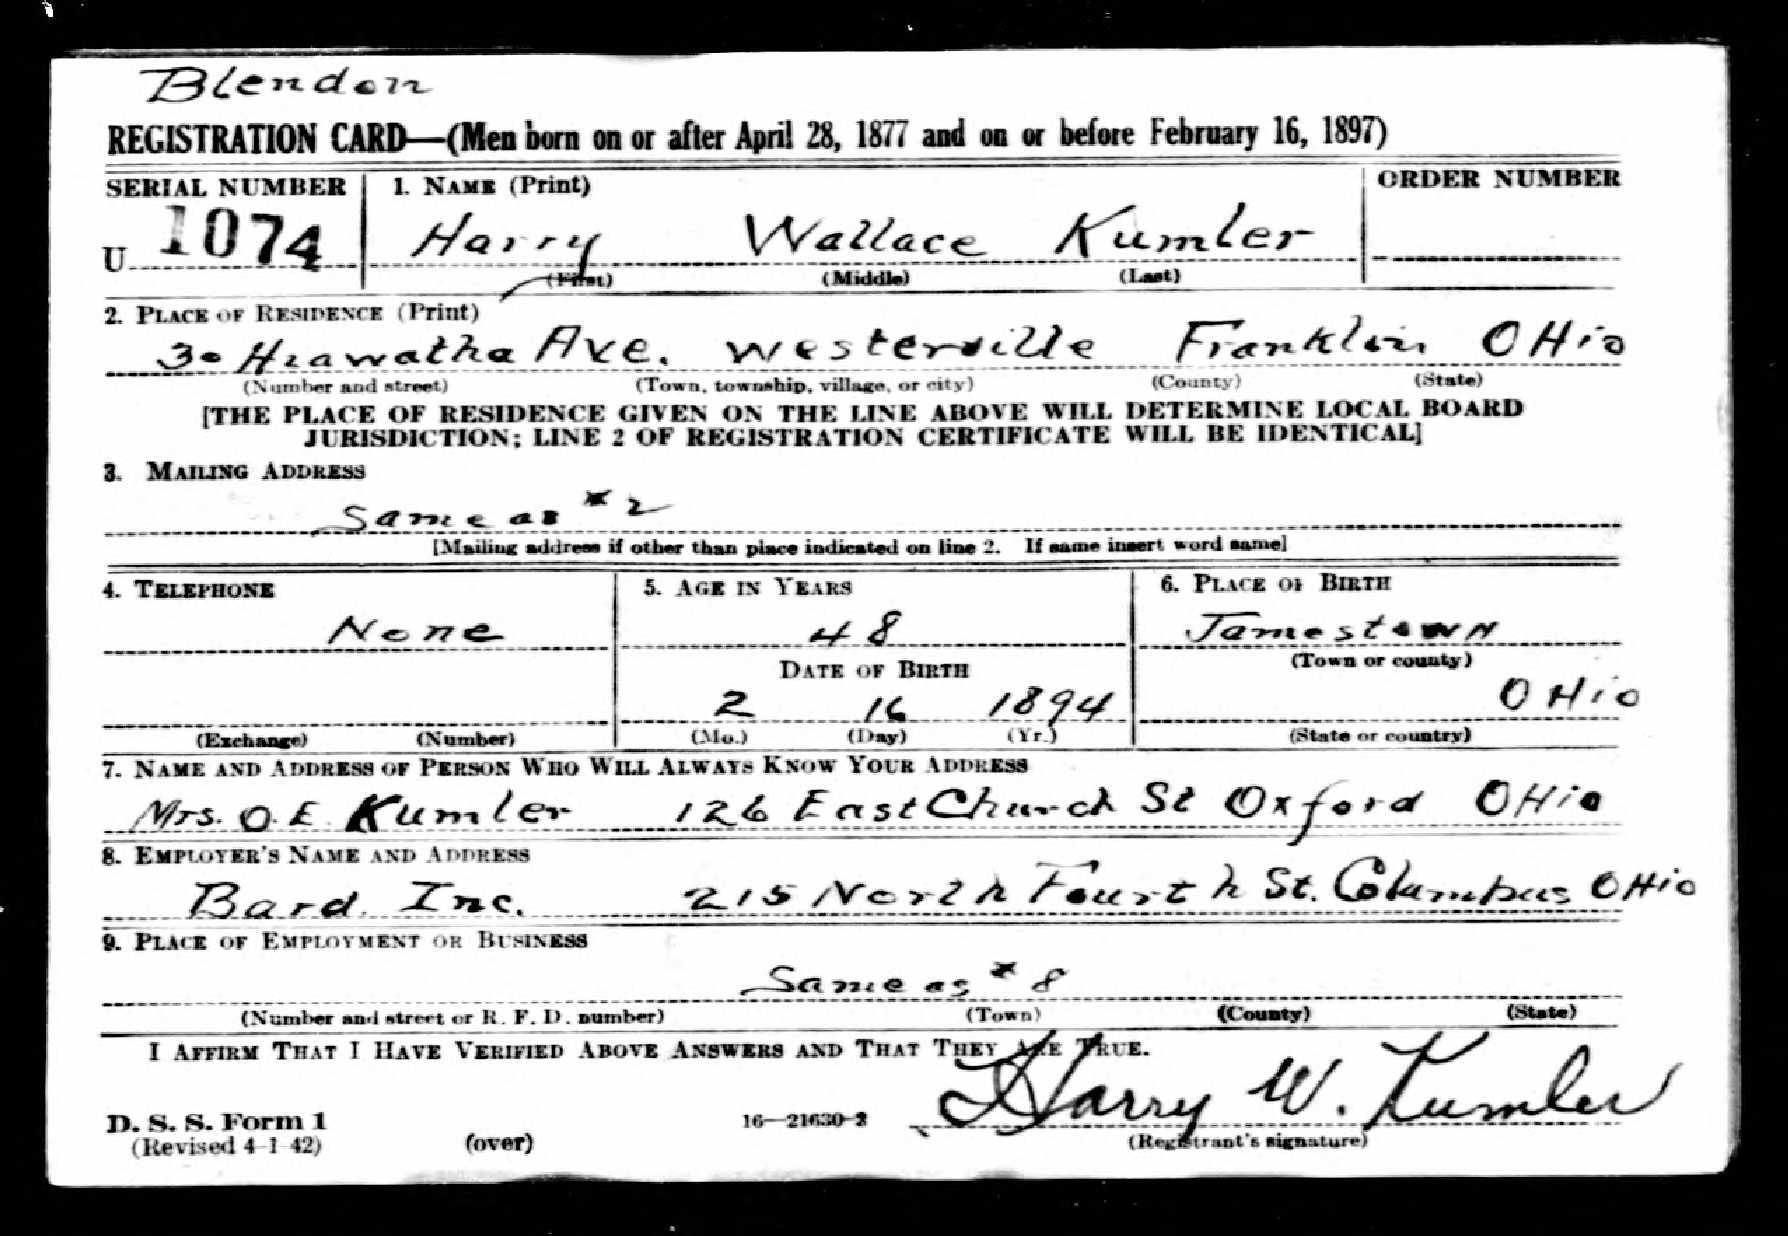 Blendon
REGISTRATION CARD—(Men born on or after April 28, 1877 and on or before February 16, 1897)
SERIAL NUMBER 1. NAME (Print) ORDER NUMBER
U 1074 Harry Wallace Kumler
(First) (Middle) (Last)
2. PLACE OF RESIDENCE (Print)
30 Hiawatha Ave. Westerville Franklin OHio
(Number and street) (Town, township, village, or city) (County) (State)
[THE PLACE OF RESIDENCE GIVEN ON THE LINE ABOVE WILL DETERMINE LOCAL BOARD
JURISDICTION; LINE 2 OF REGISTRATION CERTIFICATE WILL BE IDENTICAL]
3. MAILING ADDRESS
Same as # 2
[Mailing address if other than place indicated on line 2. If same insert word same]
4. TELEPHONE 5. AGE IN YEARS 6. PLACE OF BIRTH
None 48 Jamestown
DATE OF BIRTH (Town or county)
2 16 1894 OHio
(Exchange) (Number) (Mo.) (Day) (Yr.) (State or country)
7. NAME AND ADDRESS OF PERSON WHO WILL ALWAYS KNOW YOUR ADDRESS
Mrs. O. E. Kumler 126 East Church St Oxford OHio
8. EMPLOYER'S NAME AND ADDRESS
Bard. Inc. 215 North Fourth St. Columbus OHio
9. PLACE OF EMPLOYMENT OR BUSINESS
Same as # 8
(Number and street or R. F. D. number) (Town) (County) (State)
I AFFIRM THAT I HAVE VERIFIED ABOVE ANSWERS AND THAT THEY ARE TRUE.
Harry W. Kumler
D. S. S. Form 1 16—21630-2
(Revised 4-1-42) (over) (Registrant's signature)